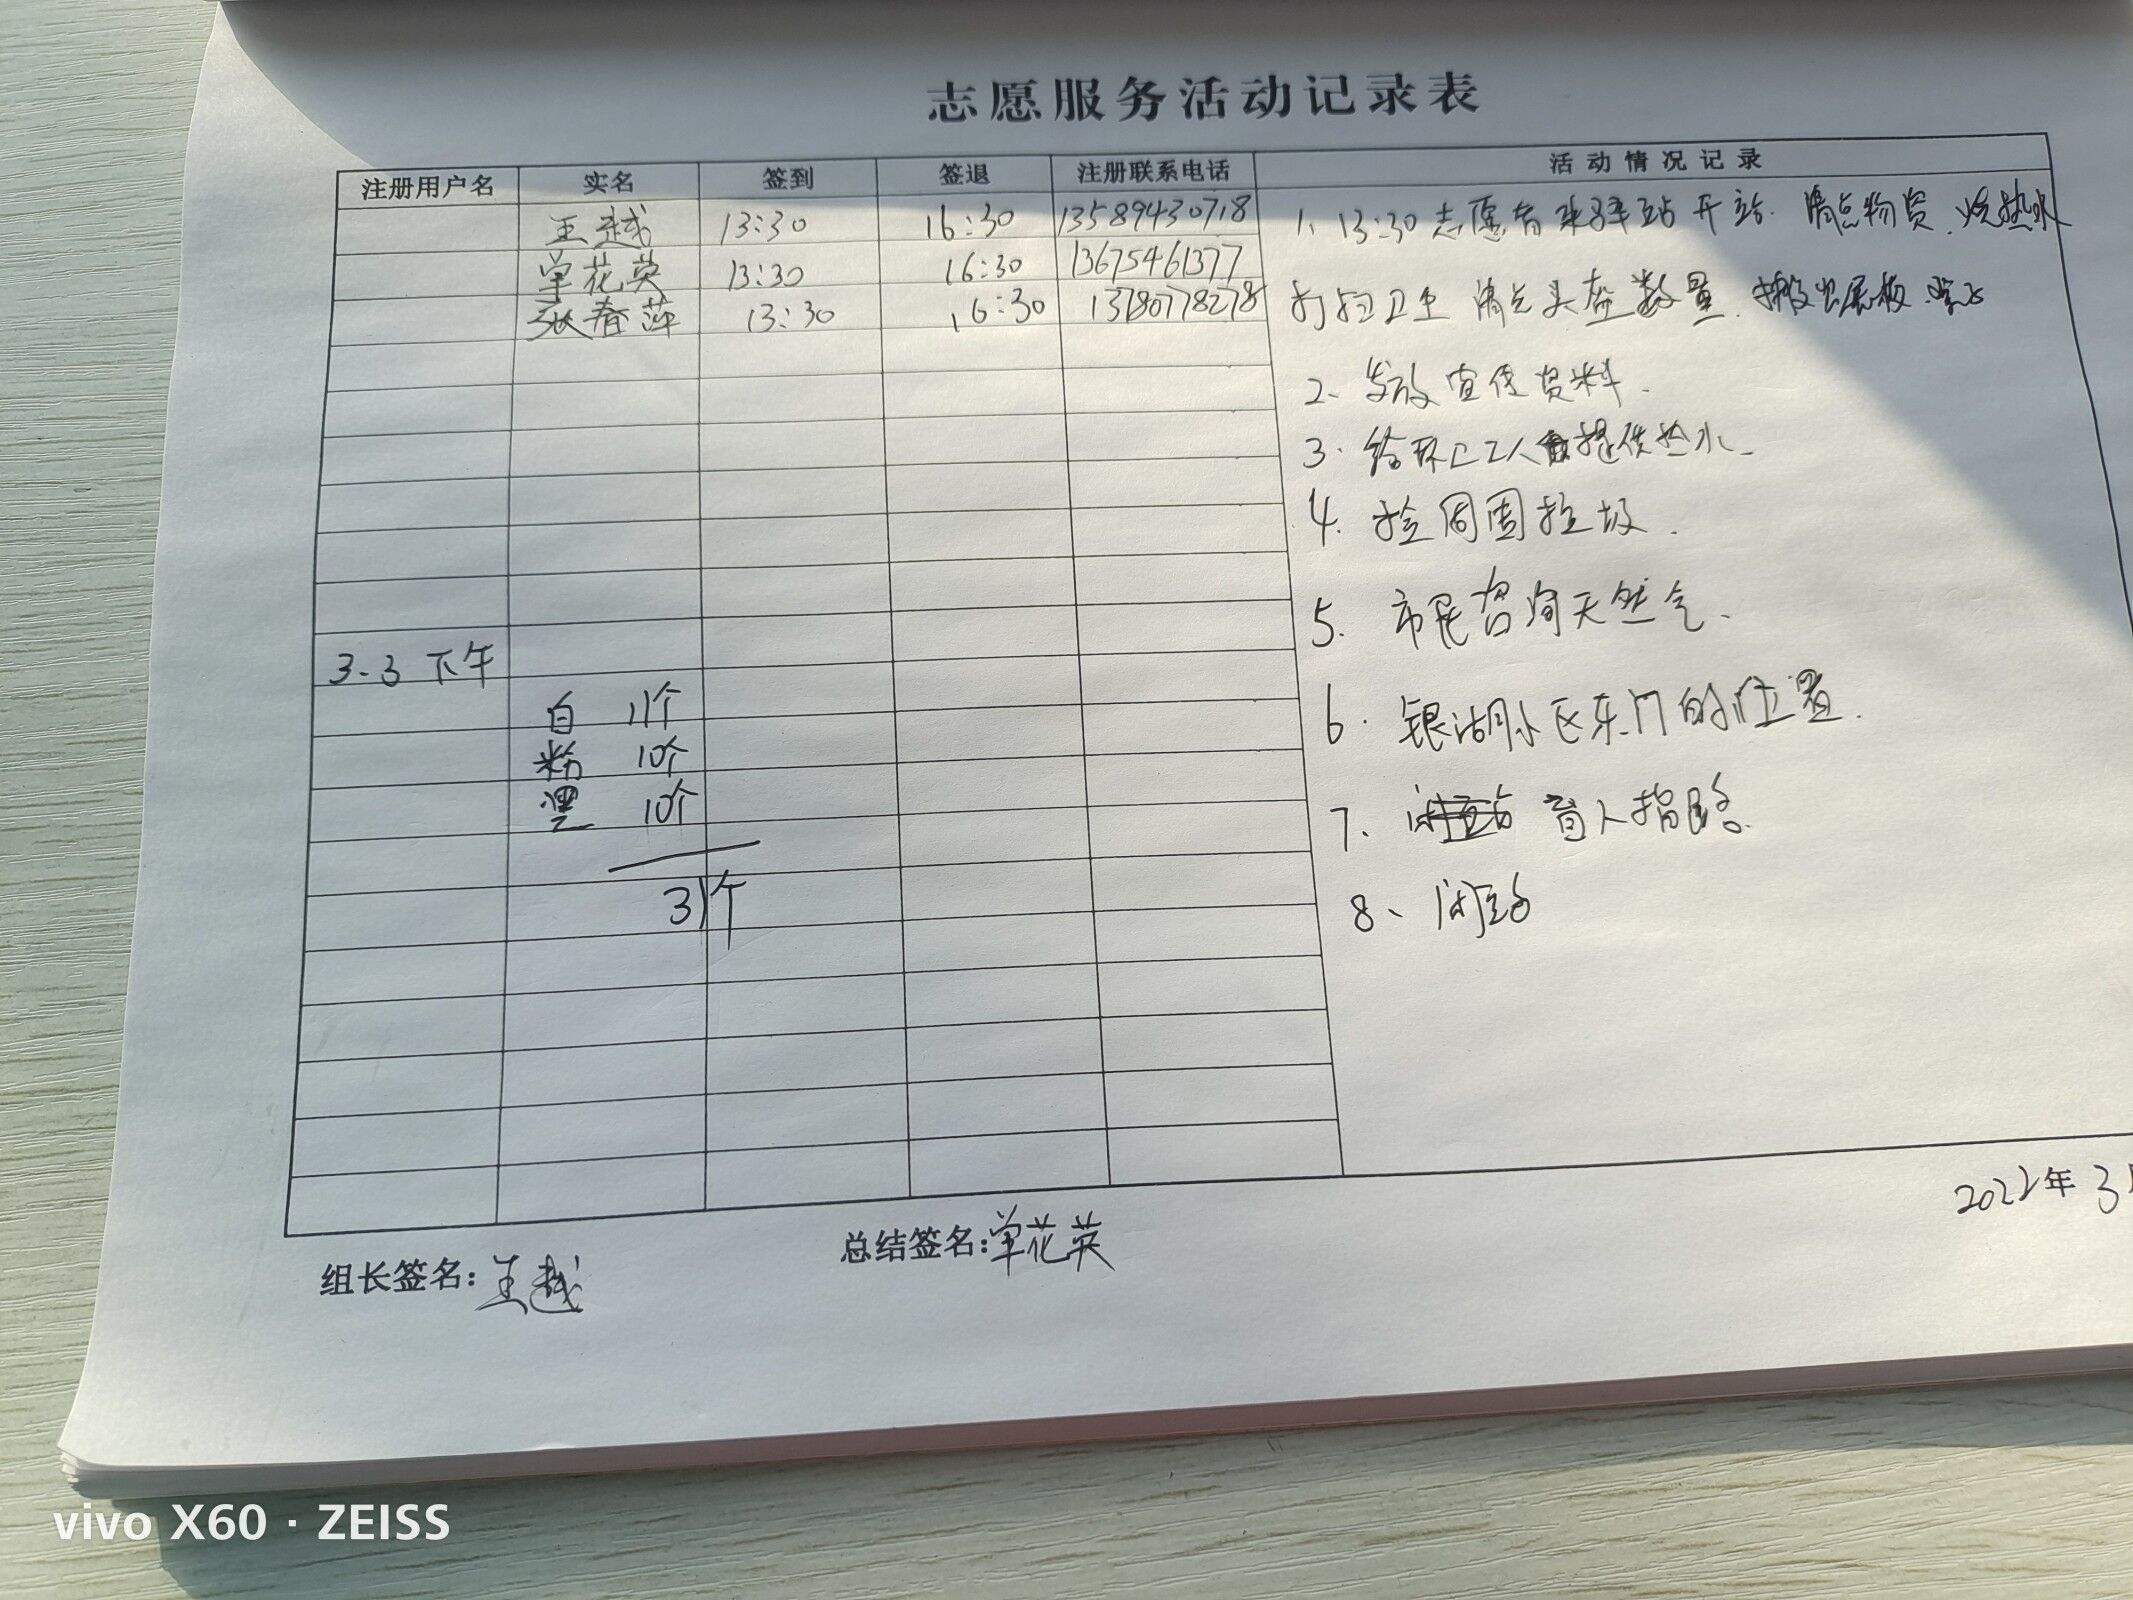 志愿服务活动记录表
注册用户名 实名 签到 签退 注册联系电话 活动情况记录
王越 13:30 16:30 13589430718
单花英 13:30 16:30 13675461377
张春萍 13:30 16:30 13780778278
1、13:30志愿者来驿站开站.清点物资、烧热水
打扫卫生 清点头盔数量.搬出展板.
2、发放宣传资料.
3.给环卫工人提供热水.
4.捡周围垃圾.
5.市民咨询天然气.
6.银湖小区东门的位置.
7、盲人指路.
8、闭站
3.3 下午
白 11个
粉 10个
黑 10个
31个
2022年3月
组长签名:王越 总结签名:单花英
vivo X60 · ZEISS